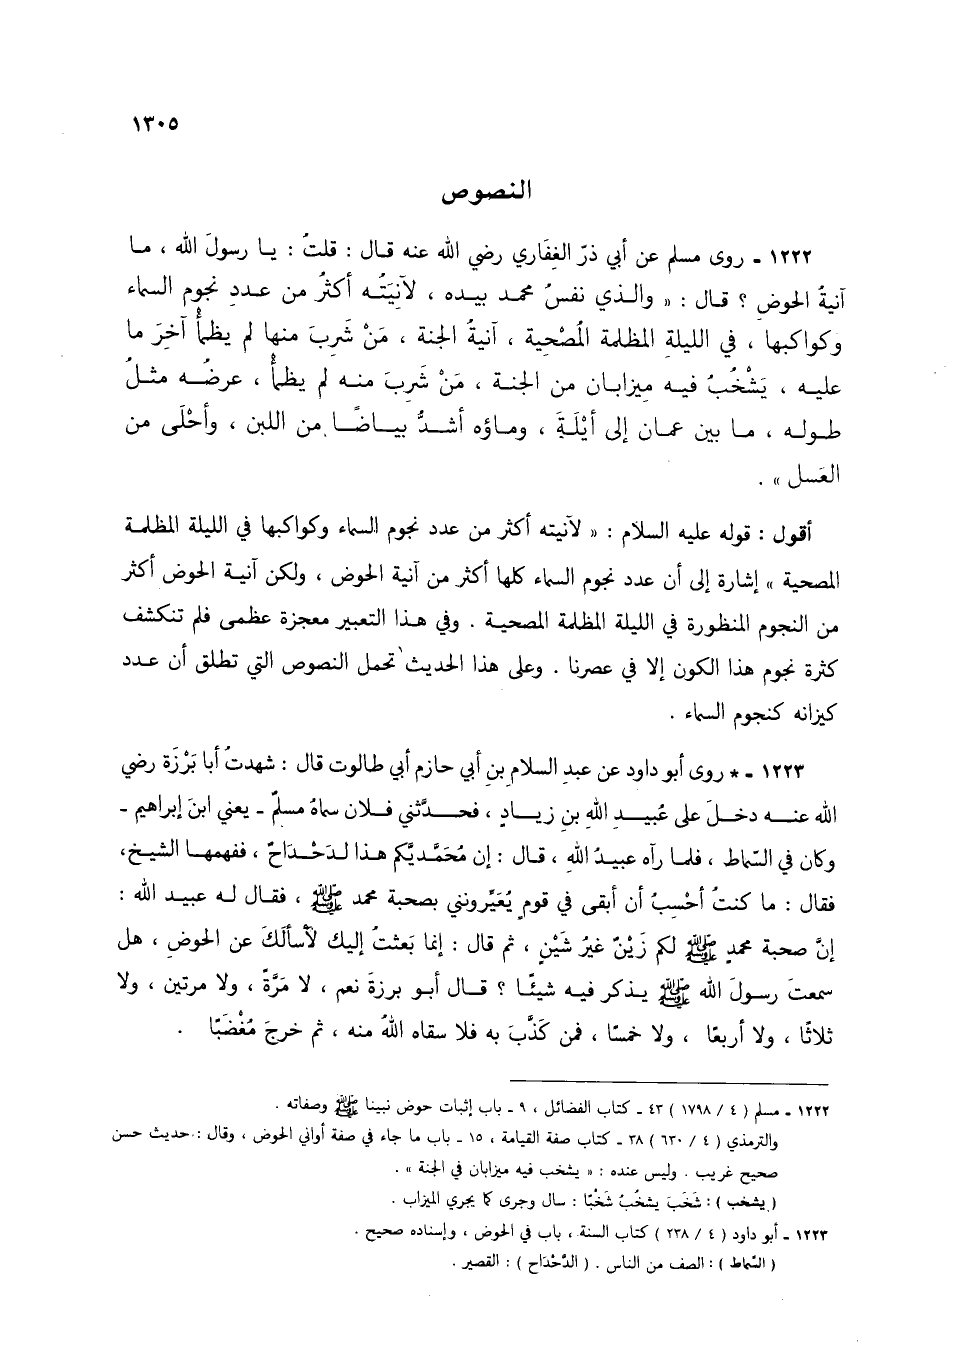 ١٣٠٥
النصوص
١٢٢٢ ـ روى مسلم عن أبي ذرّ الغِفَاري رضي الله عنه قال : قلتُ : يا رسولَ الله ، ما
آنيةُ الحوضِ ؟ قال : « والذي نفسُ محمد بيده ، لآنِيَتُه أكثرُ من عددِ نجومِ السماء
وكواكبها ، في الليلة المظلمة المُصْحِية ، آنيةُ الجنة ، مَنْ شَرِبَ منها لم يظمأُ آخرَ ما
عليه ، يَشْخُبُ فيه ميزابان من الجنة ، مَنْ شَربَ منه لم يظمأُ ، عرضُه مثلُ
طوله ، ما بين عمان إلى أيْلَةَ ، وماؤه أشدُّ بياضًا من اللبن ، وأحْلَى من
العَسل » .
أقول : قوله عليه السلام : « لآنيته أكثر من عدد نجوم السماء وكواكبها في الليلة المظلمة
المصحية » إشارة إلى أن عدد نجوم السماء كلها أكثر من آنية الحوض ، ولكن آنية الحوض أكثر
من النجوم المنظورة في الليلة المظلمة المصحية . وفي هذا التعبير معجزة عظمى فلم تنكشف
كثرة نجوم هذا الكون إلا في عصرنا . وعلى هذا الحديث تحمل النصوص التي تطلق أن عدد
كيزانه كنجوم السماء .
١٢٢٣ ـ * روى أبو داود عن عبدِ السلام بنِ أبي حازم أبي طالوت قال : شهدتُ أبا بَرْزَة رضي
الله عنه دخلَ على عُبيدِ اللهِ بنِ زيادٍ ، فحدَّثني فلان سماهُ مسلمٌ ـ يعني ابنَ إبراهيم ـ
وكان في السِّماط ، فلما رآه عبيدُ اللهِ ، قال : إن مُحَمَّديَّكم هذا لدَحْدَاحٌ ، ففهمها الشيخ،
فقال : ما كنتُ أحْسِبُ أن أبقى في قومٍ يُعَيِّرونني بصحبة محمد ﷺ ، فقال له عبيد الله :
إنَّ صحبة محمدٍ ﷺ لكم زَيْنٌ غيرُ شَيْنٍ ، ثم قال : إنما بَعَثتُ إليك لأسألَكَ عن الحوضِ ، هل
سمعتَ رسولَ الله ﷺ يذكر فيه شيئًا ؟ قال أبو برزةَ نعم ، لا مَرَّةً ، ولا مرتين ، ولا
ثلاثًا ، ولا أربعًا ، ولا خمسًا ، فمن كَذَّبَ به فلا سقاه اللهُ منه ، ثم خرجَ مُغْضَبًا .
١٢٢٢ ـ مسلم ( ٤ / ١٧٩٨ ) ٤٣ ـ كتاب الفضائل ، ٩ ـ باب إثبات حوض نبينا ﷺ وصفاته .
والترمذي ( ٤ / ٦٣٠ ) ٣٨ ـ كتاب صفة القيامة ، ١٥ ـ باب ما جاء في صفة أواني الحوض ، وقال : حديث حسن
صحيح غريب . وليس عنده : « يشخب فيه ميزابان في الجنة » .
( يشخب ) : شَخَبَ يشخُبُ شَخْبًا : سال وجرى كما يجري الميزاب .
١٢٢٣ ـ أبو داود ( ٤ / ٢٣٨ ) كتاب السنة ، باب في الحوض ، وإسناده صحيح .
( السِّماط ) : الصف من الناس . ( الدَّحْدَاح ) : القصير .